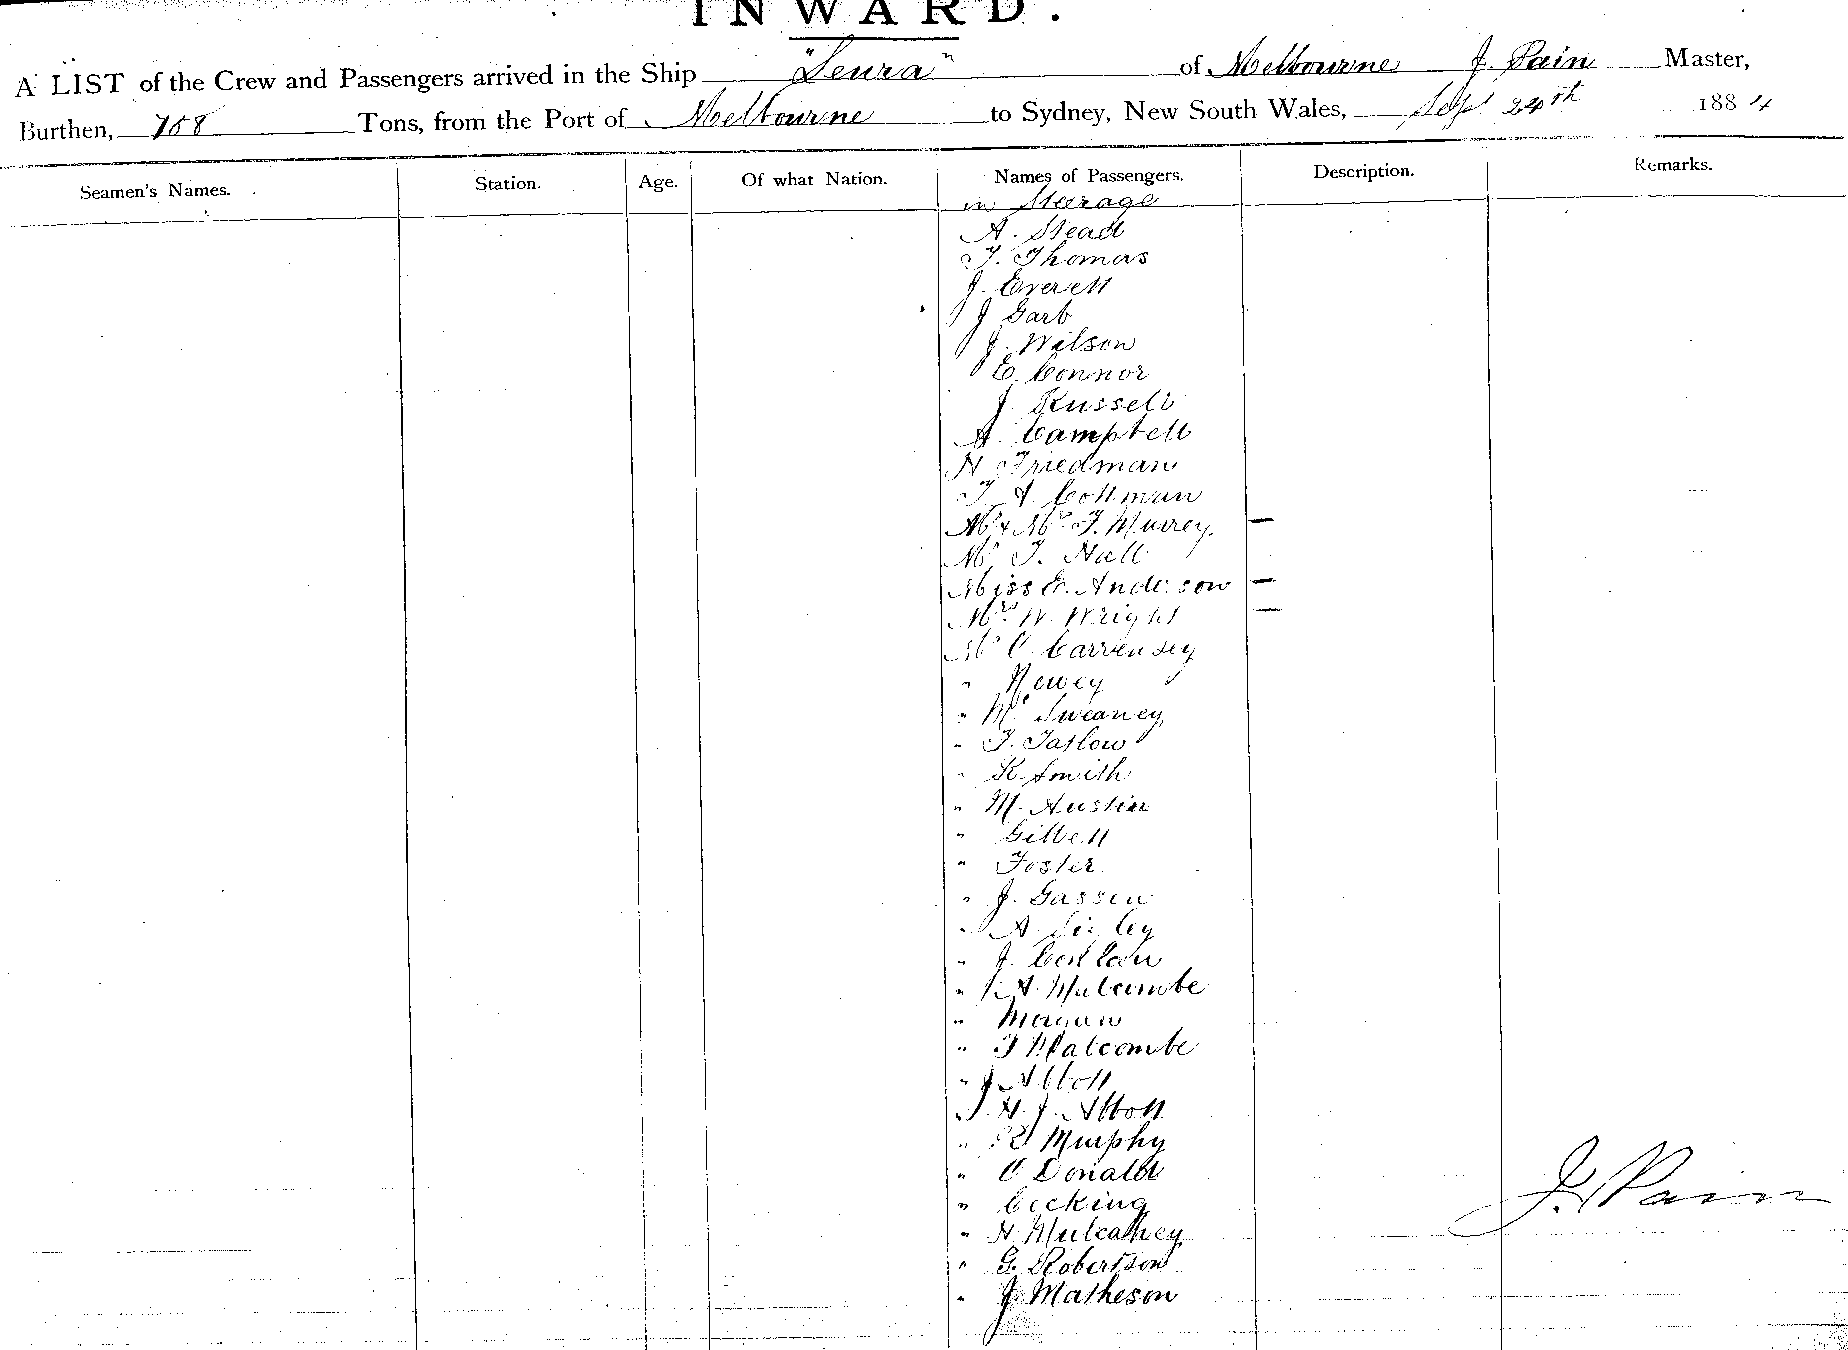 INWARD.
A LIST of the Crew and Passengers arrived in the Ship "Leura" of Melbourne J. Pain Master,
Burthen, 758 Tons, from the Port of Melbourne to Sydney, New South Wales, Sep 24th 1884
Seamen's Names. Station. Age. Of what Nation. Names of Passengers. Description. Remarks.
in Steerage
A. Stead
T. Thomas
J. Everett
J Garb
J. Wilson
E. Connor
J. Russell
A. Campbell
H Friedman
T A Cottman
Mr & Mrs F. Murrey.
Mr T. Hall
Miss E. Anderson
Mrs W. Wright
Mr C.
" Newey
" Mc Sweaney
" T. Tatlow
" R. Smith
" M. Austin
" Gilbert
" Foster
" J. Gassen
" A.
" J.
" A. Malcombe
" Morgan
" T Malcombe
" J Abbott
" H. J. Abbott
" R Murphy
" O Donald
" Cocking
" H Mulcahey
" G. Robertson
" J Matheson
J. Pain